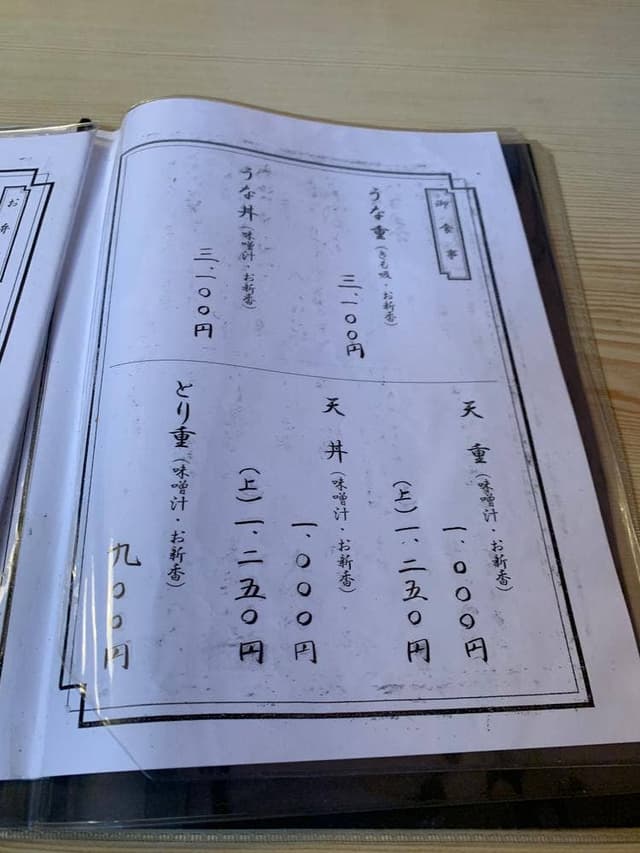 御食事
うな重(きも吸・お新香)
三、一〇〇円
うな丼(味噌汁・お新香)
三、一〇〇円
天重(味噌汁・お新香)
一、〇〇〇円
(上)一、二五〇円
天丼(味噌汁・お新香)
一、〇〇〇円
(上)一、二五〇円
とり重(味噌汁・お新香)
九〇〇円
お弁